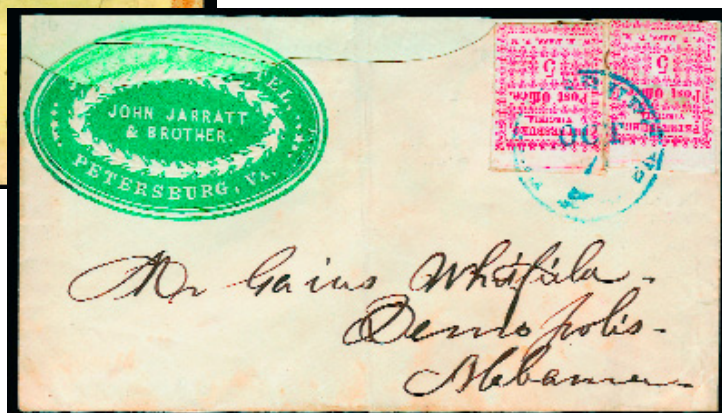 JOHN JARRATT
& BROTHER
PETERSBURG, VA.
5
Post Office.
VIRGINIA
5
Post Office.
VIRGINIA
OCT
Mr Gaius Whitfield
Demopolis
Alabama